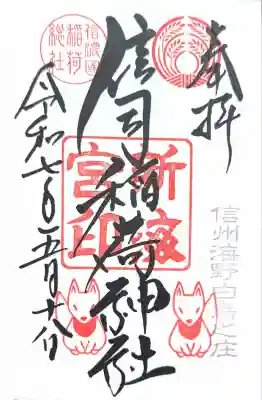 奉拝
信州海野白鳥之庄
信濃國
稲荷
総社
信司稲荷神社
宮印
令和七年五月十八日